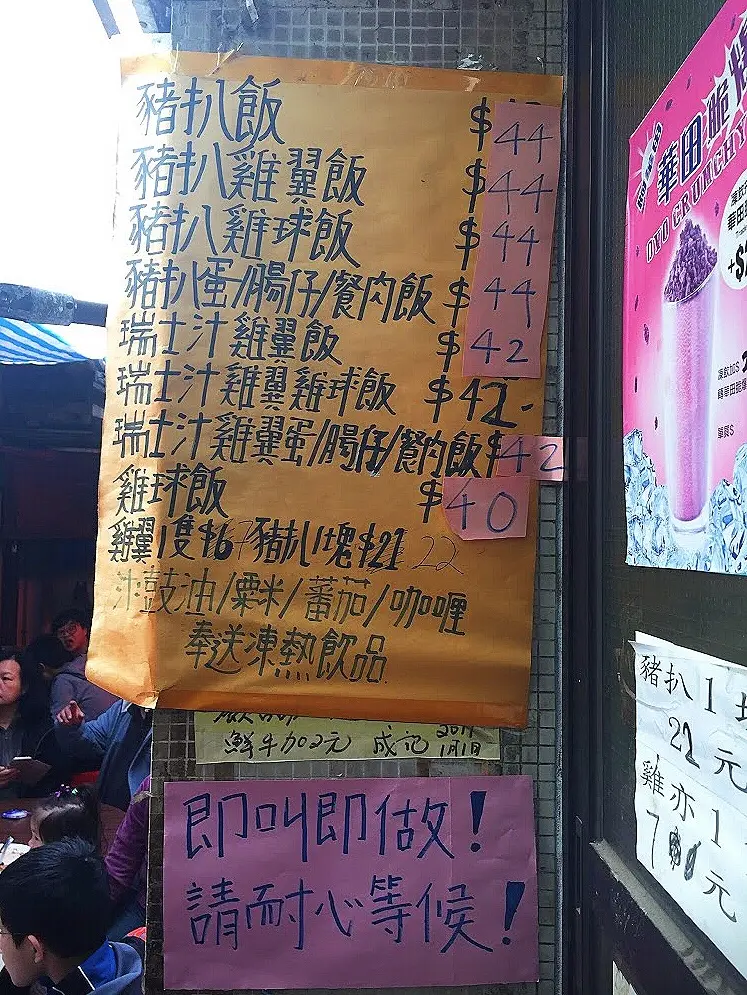 豬扒飯 $44
豬扒雞翼飯 $44
豬扒雞球飯 $44
豬扒蛋/腸仔/餐肉飯 $44
瑞士汁雞翼飯 $42
瑞士汁雞翼雞球飯 $42-
瑞士汁雞翼蛋/腸仔/餐肉飯 $42
雞球飯 $40
雞翼1隻$67 豬扒1塊$21 22
汁豉油/粟米/蕃茄/咖喱
奉送凍熱飲品
鮮牛加2元 成記 2017 1月1日
即叫即做!
請耐心等候!
華田脆
OVO CRUNCHY
+$
單買$
豬扒1
22元
雞亦1
7元